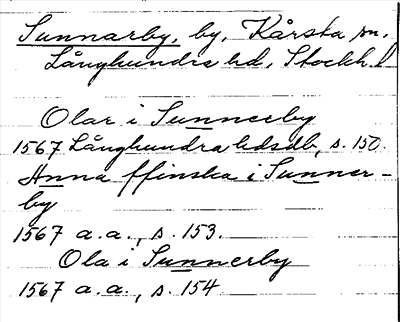 Sunnarby, by, Kårsta sn,
Långhundra hd, Stockh. l
Olar i Sunnerby
1567 Långhundra hdsdb, s. 150.
Anna ffinska i Sunner-
by
1567 a.a., s. 153.
Ola i Sunnerby
1567 a.a., s. 154